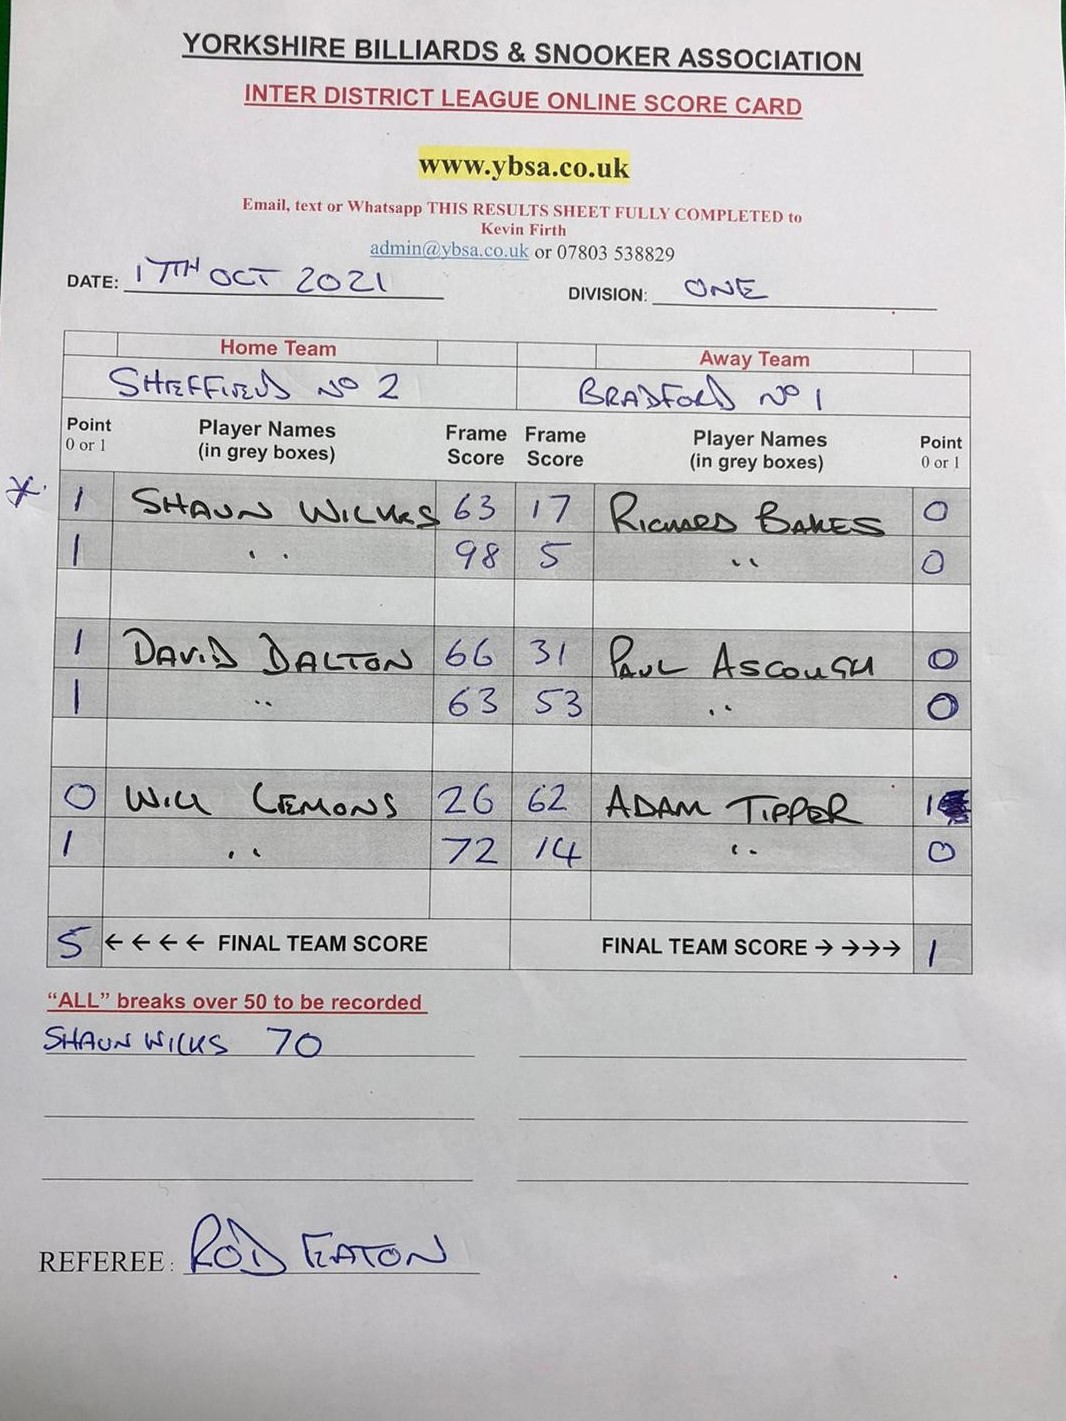 YORKSHIRE BILLIARDS & SNOOKER ASSOCIATION
INTER DISTRICT LEAGUE ONLINE SCORE CARD
www.ybsa.co.uk
Email, text or Whatsapp THIS RESULTS SHEET FULLY COMPLETED to
Kevin Firth
admin@ybsa.co.uk or 07803 538829
DATE: 17TH OCT 2021 DIVISION: ONE
Home Team Away Team
SHEFFIELD NO 2 BRADFORD NO 1
Point 0 or 1 Player Names (in grey boxes) Frame Score Frame Score Player Names (in grey boxes) Point 0 or 1
* 1 SHAUN WILKS 63 17 RICHARD BAKES 0
1 " 98 5 " 0
1 DAVID DALTON 66 31 PAUL ASCOUGH 0
1 " 63 53 " 0
0 WILL LEMONS 26 62 ADAM TIPPER 1
1 " 72 14 " 0
5 ←←←← FINAL TEAM SCORE FINAL TEAM SCORE →→→→ 1
"ALL" breaks over 50 to be recorded
SHAUN WILKS 70
REFEREE: ROD EATON